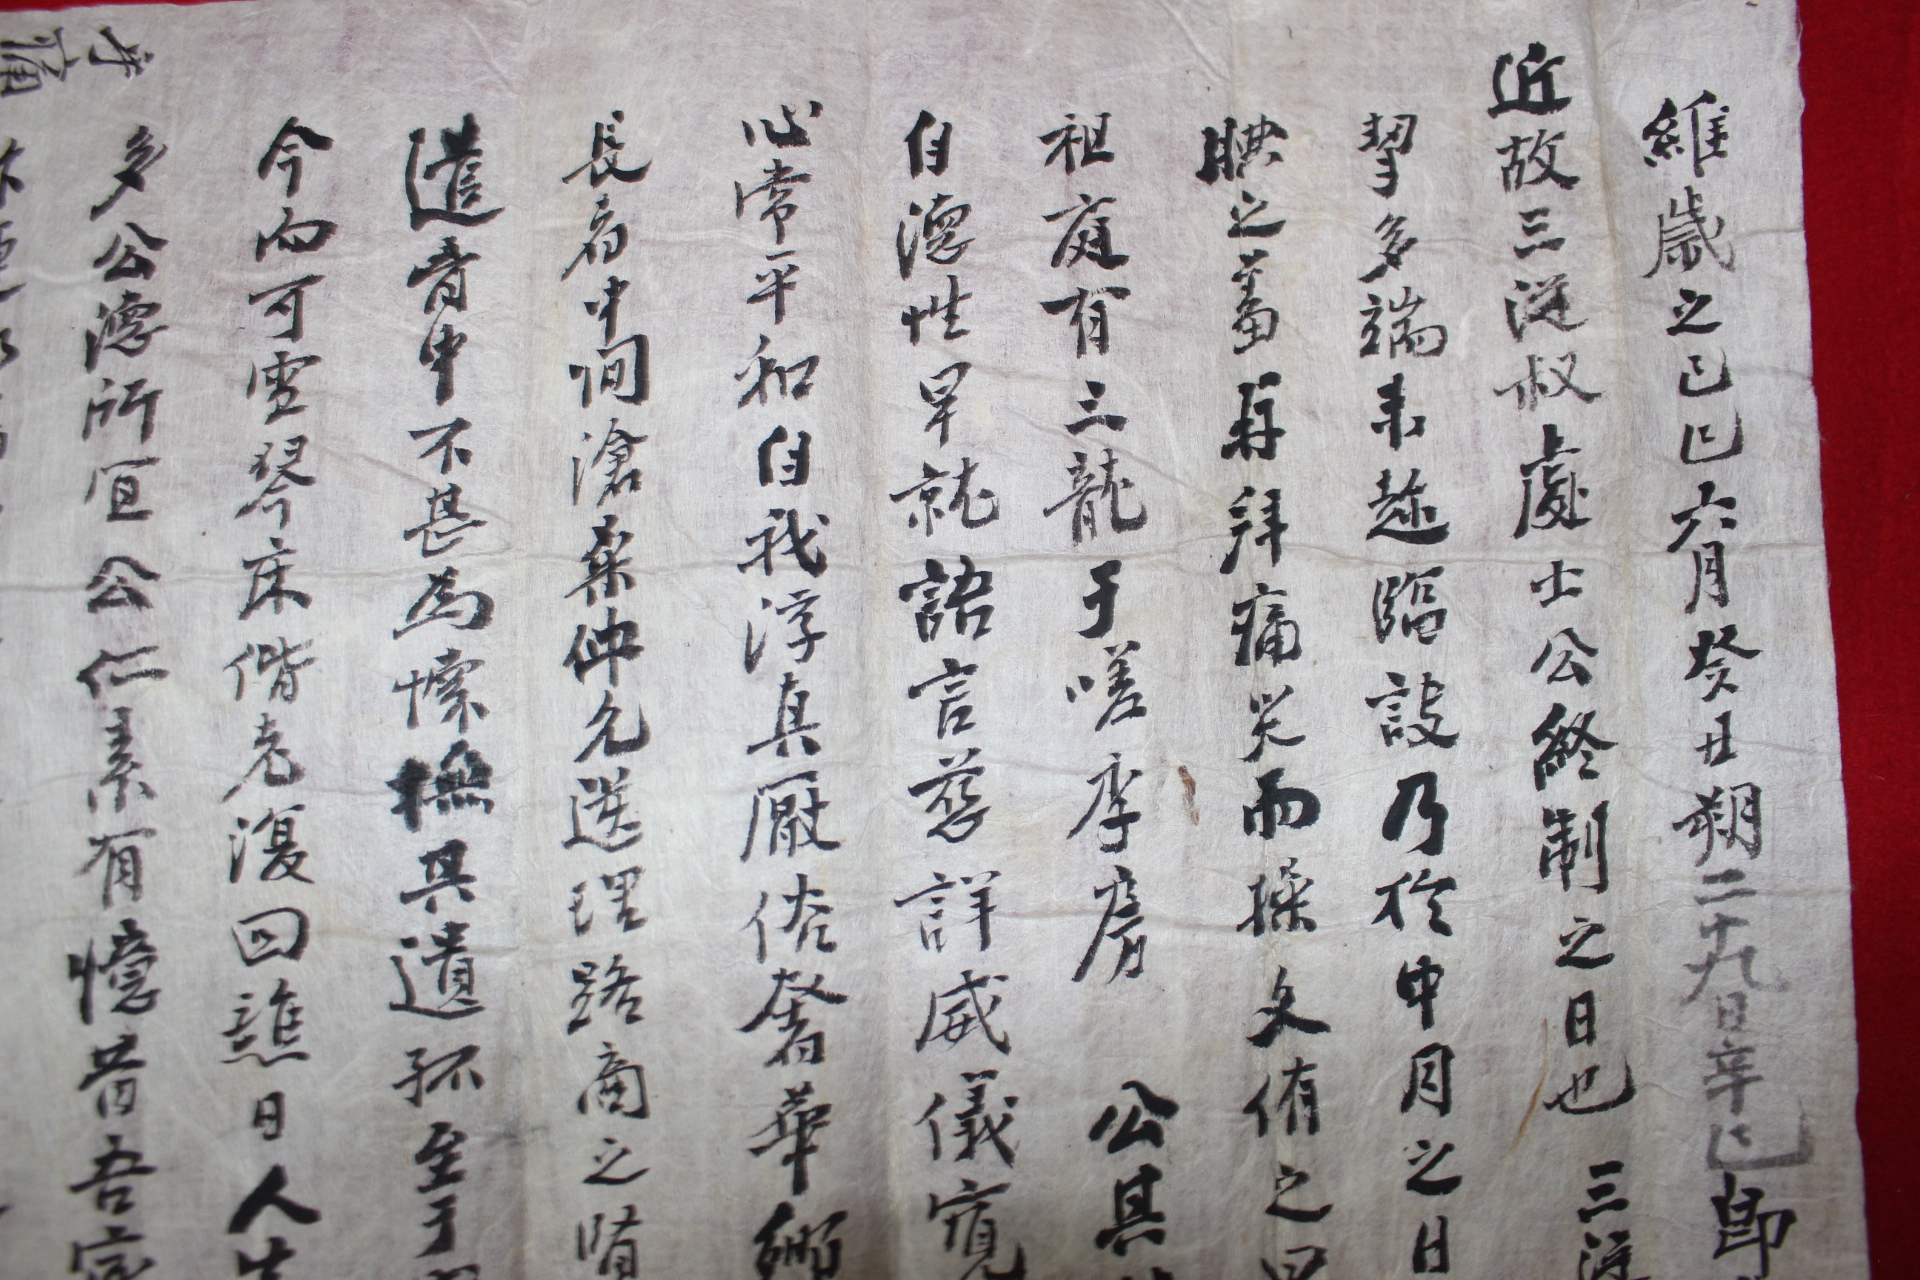 維歲之己巳六月癸丑朔二十九日辛巳卽
近故三從叔處士公終制之日也 三從
挐多端未趂臨訣乃於中月之日
腆之羞再拜痛哭而操文侑之曰
祖庭有三龍于嗟李房 公其
自德性早就語言慈詳威儀寬
心常平和自我淳真厭俗奢華鄉
長者中間滄桑仲允送理路商之
遺音中不甚為懷撫其遺孤至于
今而可壼琴床偕老復回譙日人生
多公德所宜公仁素有憶昔吾